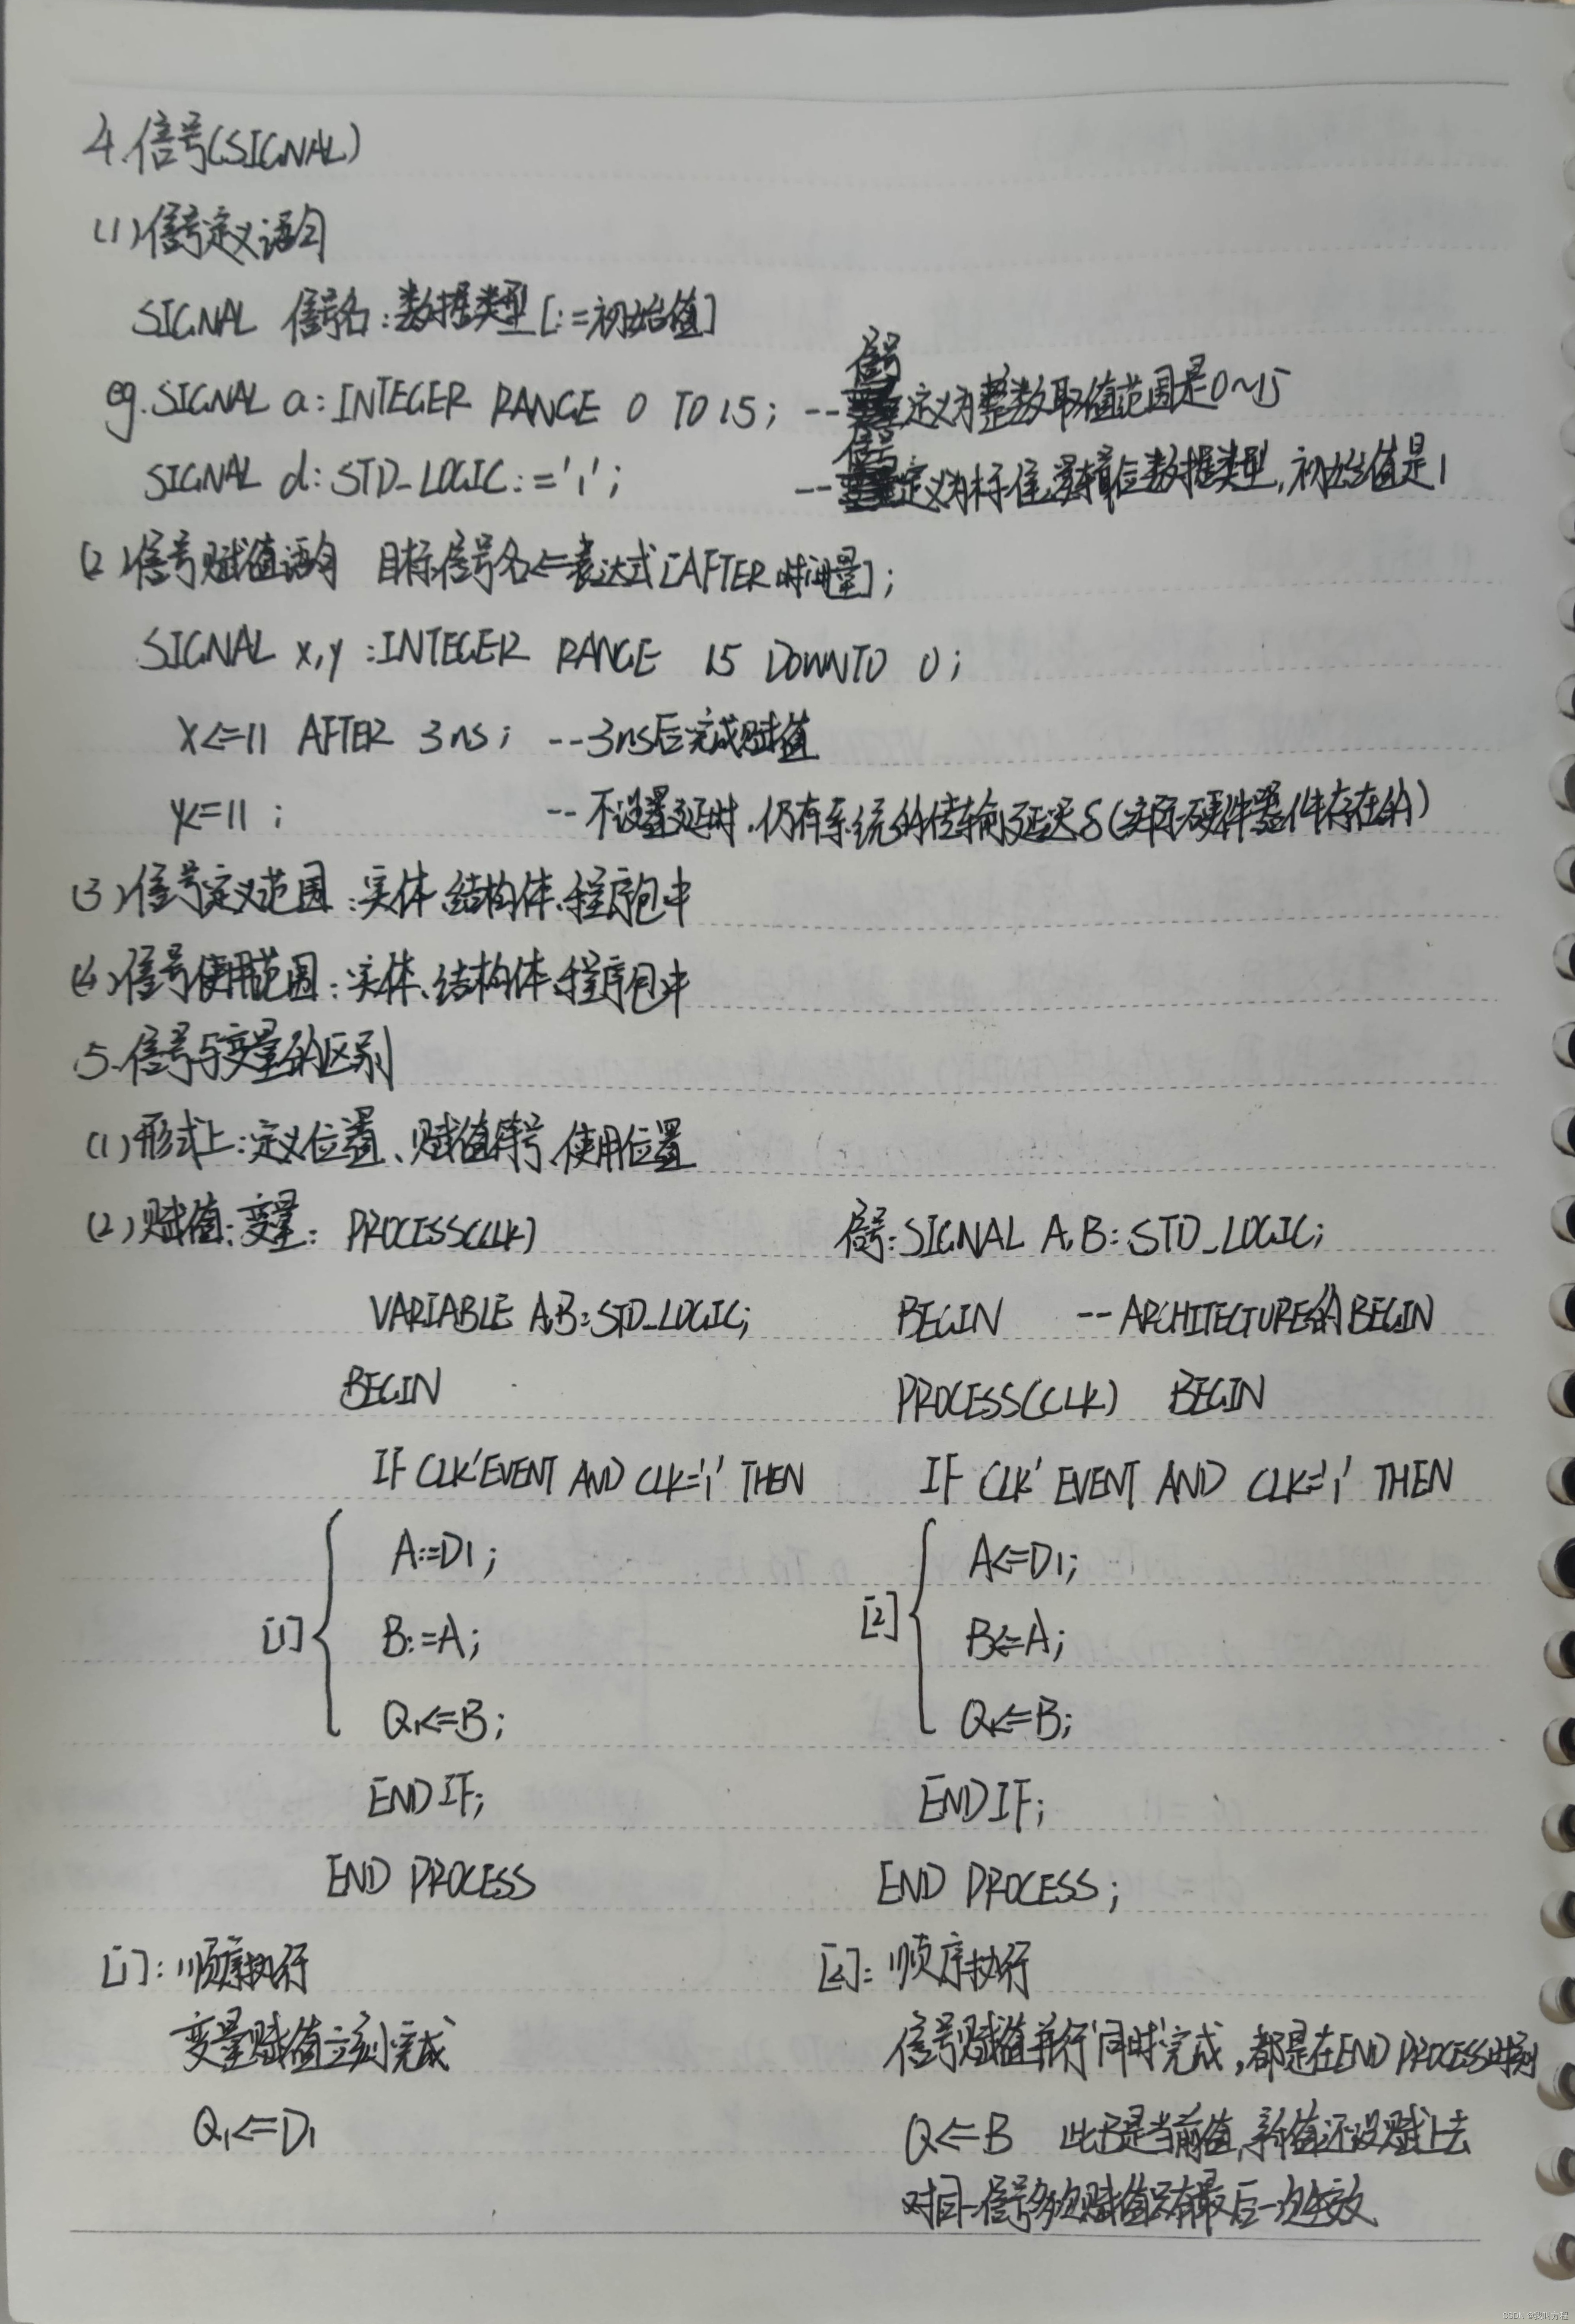 4.信号(SIGNAL)
(1)信号定义语句
SIGNAL 信号名:数据类型[:=初始值]
eg.SIGNAL a:INTEGER RANGE 0 TO 15; --信号定义为整数取值范围是0~15
SIGNAL d:STD_LOGIC:='1'; --信号定义为标准逻辑位数据类型,初始值是1
(2)信号赋值语句 目标信号名<=表达式[AFTER 时间量];
SIGNAL x,y:INTEGER RANGE 15 DOWNTO 0;
x<=11 AFTER 3ns; --3ns后完成赋值
y<=11; --不设置延时,仍有系统的传输延迟δ(实际硬件器件存在的)
(3)信号定义范围:实体、结构体、程序包中
(4)信号使用范围:实体、结构体、程序包中
5.信号与变量的区别
(1)形式上:定义位置、赋值符号、使用位置
(2)赋值:变量: PROCESS(CLK) 信号:SIGNAL A,B:STD_LOGIC;
VARIABLE A,B:STD_LOGIC; BEGIN --ARCHITECTURE的BEGIN
BEGIN PROCESS(CLK) BEGIN
IF CLK'EVENT AND CLK='1' THEN IF CLK'EVENT AND CLK='1' THEN
A:=D1; A<=D1;
[1] B:=A; [2] B<=A;
Q1<=B; Q1<=B;
END IF; END IF;
END PROCESS END PROCESS;
[1]:顺序执行 [2]:顺序执行
变量赋值立刻完成 信号赋值并行"同时"完成,都是在END PROCESS时刻
Q1<=D1 Q<=B 此B是当前值,新值还没赋上去
对同一信号多次赋值只有最后一次生效
CSDN